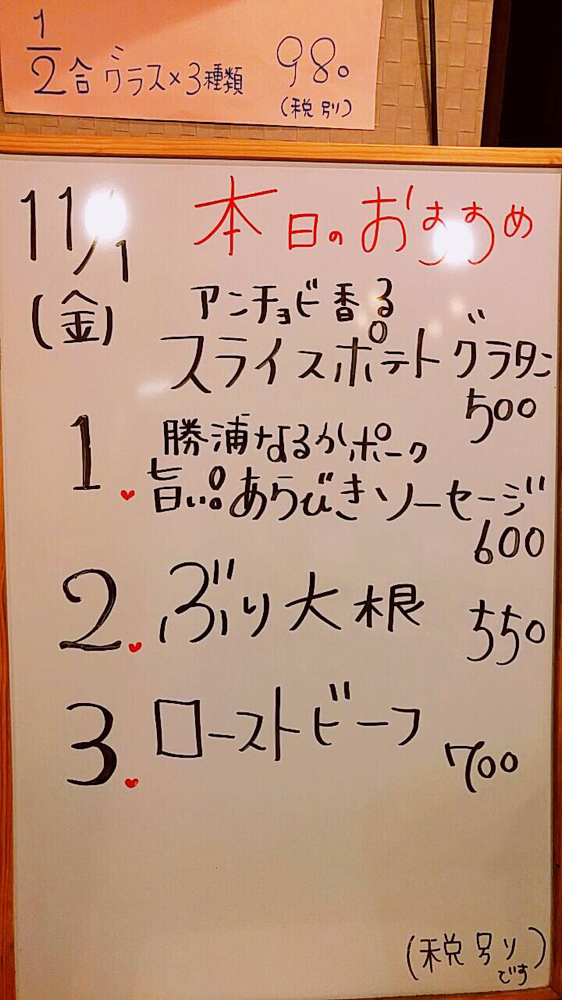 1/2合グラス×3種類 980
(税別)
11/1
(金)
本日のおすすめ
アンチョビ香る
スライスポテトグラタン
500
1. 勝浦なるかポーク
旨い!!あらびきソーセージ
600
2. ぶり大根 550
3. ローストビーフ 700
(税別)
です